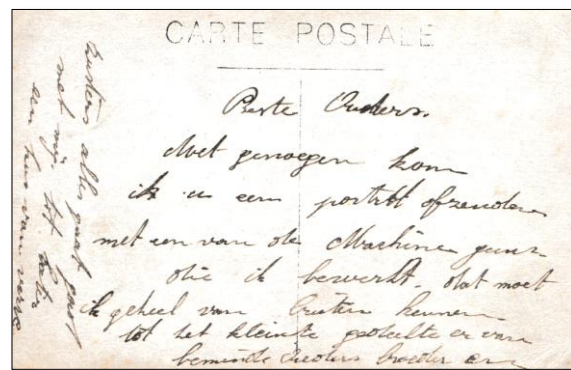 CARTE POSTALE
Beste Ouders.
Met genoegen kom
ik u een portret afzenden
met een van de Machine geus
die ik bewerkt. dat moet
ik geheel van buiten kennen
tot het kleinste gedeelte er van
beminde Ouders broeder en
Zusters alles gaat goed
met mij tot later
een kus van verre